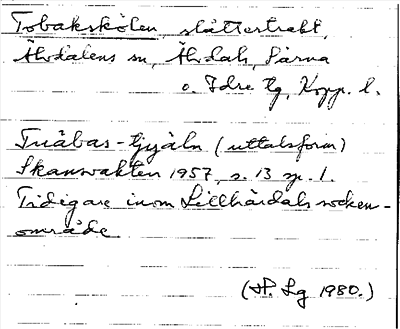 Tobakskölen, slåttertrakt,
Älvdalens sn, Älvdals, Särna
o. Idre tg, Kopp. l.
Tuåbas-tjyäln (uttalsform)
Skansvakten 1957, s. 13 sp. 1.
Tidigare inom Lillhärdals socken-
område
(H. Lg 1980.)